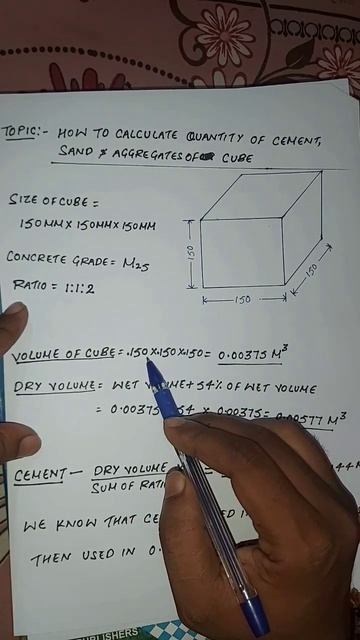 TOPIC:- HOW TO CALCULATE QUANTITY OF CEMENT,
SAND & AGGREGATES OF CUBE
SIZE OF CUBE =
150MM X 150MM X 150MM
CONCRETE GRADE = M25
RATIO = 1:1:2
150
150
150
VOLUME OF CUBE = .150 X .150 X .150 = 0.00375 M³
DRY VOLUME = WET VOLUME + 54% OF WET VOLUME
= 0.00375 54 X 0.00375 = 0.00577 M³
CEMENT - DRY VOLUME
SUM OF RATI
WE KNOW THAT CE USED IN
THEN USED IN 0.
PUBLISHERS